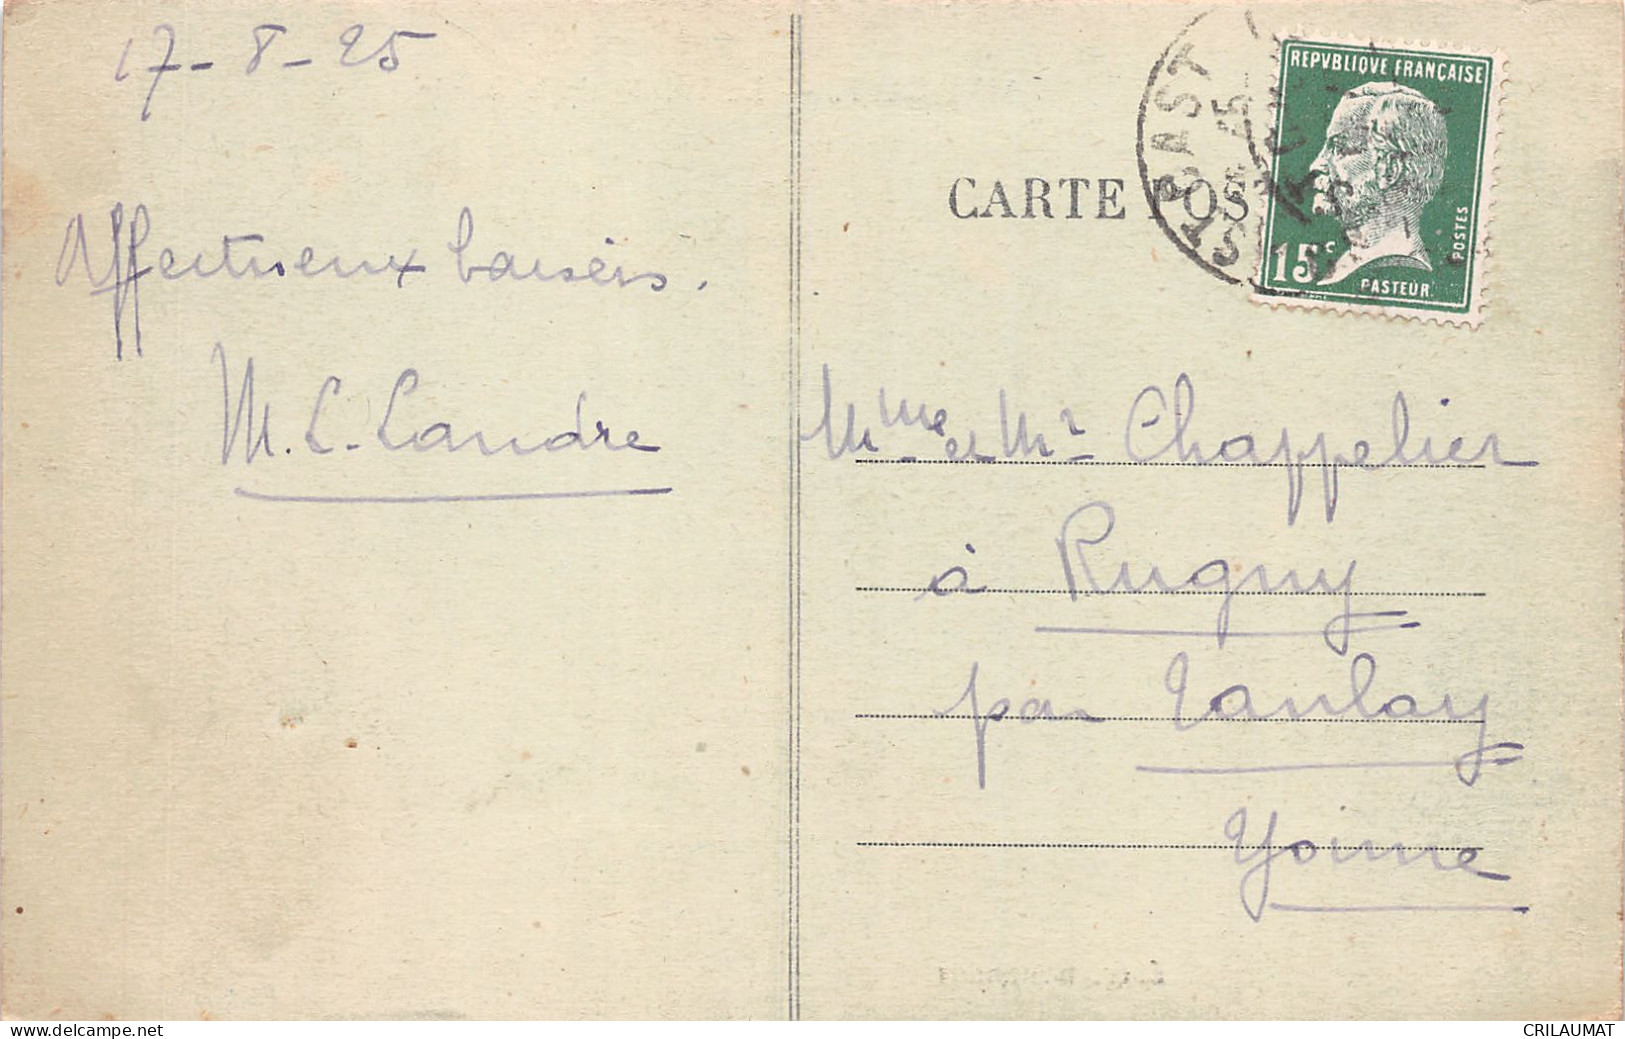 17-8-25
Affectueux baisers.
M. L. Landre
CARTE POST
ST CAST
REPVBLIQVE FRANÇAISE
15c
PASTEUR.
POSTES
Mme et Mr Chappelier
à Rugny
par Tanlay
Yonne
www.delcampe.net
CRILAUMAT